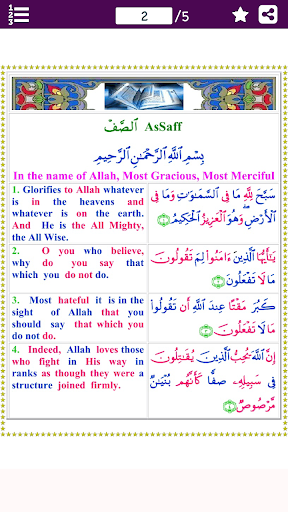 1
2
3
2 /5
ٱلصَّفّ AsSaff
بِسْمِ ٱللَّهِ ٱلرَّحْمَٰنِ ٱلرَّحِيمِ
In the name of Allah, Most Gracious, Most Merciful
1. Glorifies to Allah whatever
is in the heavens and
whatever is on the earth.
And He is the All Mighty,
the All Wise.
سَبَّحَ لِلَّهِ مَا فِى ٱلسَّمَٰوَٰتِ وَمَا فِى
ٱلْأَرْضِ وَهُوَ ٱلْعَزِيزُ ٱلْحَكِيمُ ١
2. O you who believe,
why do you say that
which you do not do.
يَٰٓأَيُّهَا ٱلَّذِينَ ءَامَنُوا۟ لِمَ تَقُولُونَ
مَا لَا تَفْعَلُونَ ٢
3. Most hateful it is in the
sight of Allah that you
should say that which you
do not do.
كَبُرَ مَقْتًا عِندَ ٱللَّهِ أَن تَقُولُوا۟
مَا لَا تَفْعَلُونَ ٣
4. Indeed, Allah loves those
who fight in His way in
ranks as though they were a
structure joined firmly.
إِنَّ ٱللَّهَ يُحِبُّ ٱلَّذِينَ يُقَٰتِلُونَ
فِى سَبِيلِهِۦ صَفًّا كَأَنَّهُم بُنْيَٰنٌ
مَّرْصُوصٌ ٤